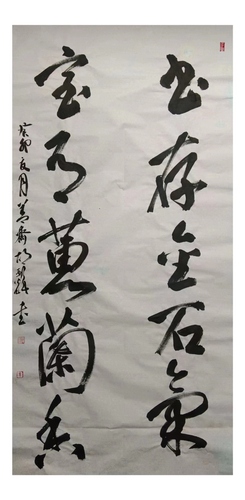 书存金石气
室有蕙兰香
癸卯夏月